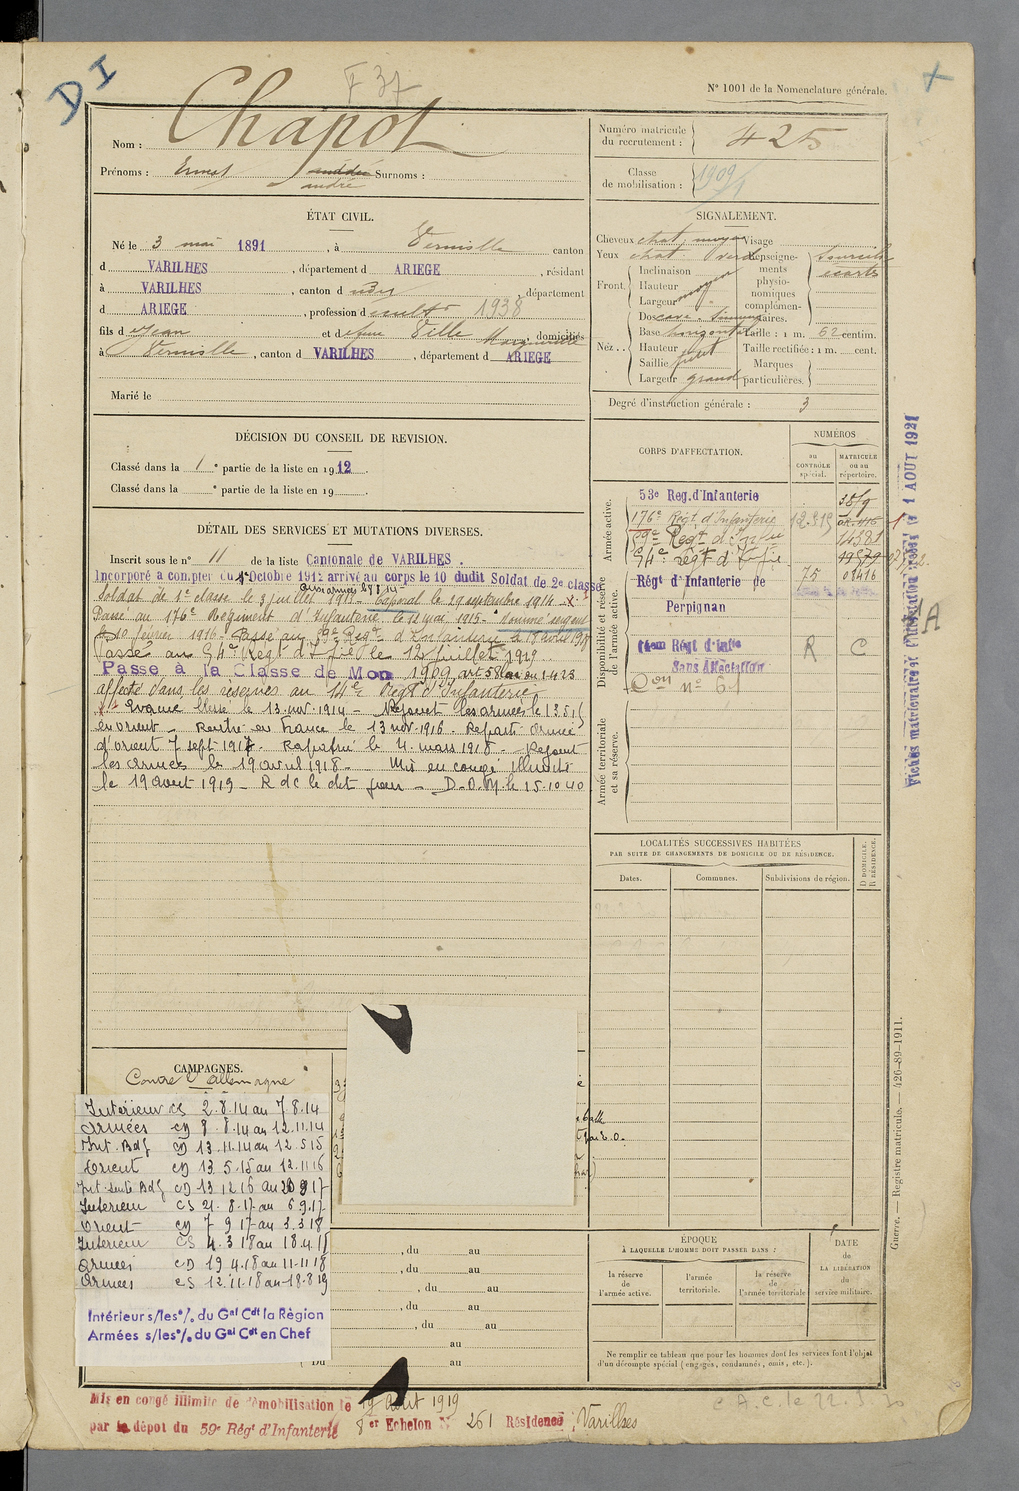 DI
F 37
N° 1001 de la Nomenclature générale.
Nom : Chapot
Prénoms : Ernest André Surnoms :
Numéro matricule du recrutement : 425
Classe de mobilisation : 1909
ÉTAT CIVIL.
Né le 3 mai 1891, à Verniolle canton
d VARILHES, département d ARIEGE, résidant
à VARILHES, canton d udit, département
d ARIEGE, profession d cultr 1938
fils d e Jean et d e feue Ville Marguerite domiciliés
à Verniolle, canton d VARILHES, département d ARIEGE
Marié le
SIGNALEMENT.
Cheveux chat. moyen Visage
Yeux chat. verd. Renseignements physionomiques complémentaires. Sourcils écartés
Front. Inclinaison moyen
Hauteur
Largeur
Nez. Dos cave. sinueux
Base horizontal Taille : 1 m. 62 centim.
Hauteur Taille rectifiée : 1 m. cent.
Saillie petit Marques particulières.
Largeur grand
Degré d'instruction générale : 3
DÉCISION DU CONSEIL DE REVISION.
Classé dans la 1e partie de la liste en 1912.
Classé dans la e partie de la liste en 19 .
DÉTAIL DES SERVICES ET MUTATIONS DIVERSES.
Inscrit sous le n° 11 de la liste Cantonale de VARILHES.
Incorporé a compter du 1er Octobre 1912 arrivé au corps le 10 dudit Soldat de 2e classe
aux armées le 8 8 14
Soldat de 1e classe le 3 juillet 1914 Caporal le 29 septembre 1914
Passé au 176e Régiment d'Infanterie le 12 mai 1915 - Nommé sergent
le 10 février 1916 - Passé au 59e Régt d'Infanterie le 18 avril 1918
Passé au 54e Régt d'Infie le 12 juillet 1919
Passé à la Classe de Mon 1909 art 58 Loi du 1.4.23
affecté dans les réserves au 14e Régt d'Infanterie
Evacué blessé le 13 nov. 1914 - Rejoint les armées le 13 5 15
en orient - Rentré en France le 13 nov. 1916. Reparti armée
d'orient 7 sept 1917. Rapatrié le 4 mars 1918 - Rejoint
les armées le 19 avril 1918 - Mis en congé illimité
le 19 août 1919 - R d C le dit jour - D.O.M. le 15.10.40
CORPS D'AFFECTATION.
NUMÉROS
au CONTRÔLE spécial.
MATRICULE ou au répertoire.
Armée active.
53e Reg. d'Infanterie
176e Régt d'Infanterie
59e Régt d'Infie
54e Régt d'Infie
14581
Disponibilité et réserve de l'armée active.
Régt d'Infanterie de Perpignan 75
14em Régt d'Infie R C
Sans Affectation
Don n° 61
Armée territoriale et sa réserve.
1 AOUT 1921
A
LOCALITÉS SUCCESSIVES HABITÉES
PAR SUITE DE CHANGEMENTS DE DOMICILE OU DE RÉSIDENCE.
Dates. Communes. Subdivisions de région. D DOMICILE. R RÉSIDENCE.
CAMPAGNES.
Contre l'Allemagne
Intérieur CS 2.8.14 au 7.8.14
Armées CD 8.8.14 au 12.11.14
Int. Bdg CD 13.11.14 au 12.5.15
Orient CD 13.5.15 au 12.11.16
Int. Suite Bdg CD 13 12 16 au 20 8 17
Intérieur CS 21.8.17 au 6 9.17
Orient CD 7 9 17 au 3.3.18
Intérieur CS 4.3.18 au 18.4.18
Armées CD 19 4.18 au 11.11.18
Armées CS 12.11.18 au 18.8.19
Intérieur s/les °/. du Gal Cdt la Région
Armées s/les °/. du Gal Cdt en Chef
, du au
, du au
, du au
, du au
, du au
au
Du au
ÉPOQUE
À LAQUELLE L'HOMME DOIT PASSER DANS :
la réserve de l'armée active.
l'armée territoriale.
la réserve de l'armée territoriale
DATE de LA LIBÉRATION du service militaire.
Ne remplir ce tableau que pour les hommes dont les services font l'objet
d'un décompte spécial (engagés, condamnés, omis, etc.).
Guerre. — Registre matricule. — 426-89-1911.
Mis en congé illimité de démobilisation le 19 août 1919
par le dépôt du 59e Régt d'Infanterie 8er Echelon N° 261 Résidence Varilhes